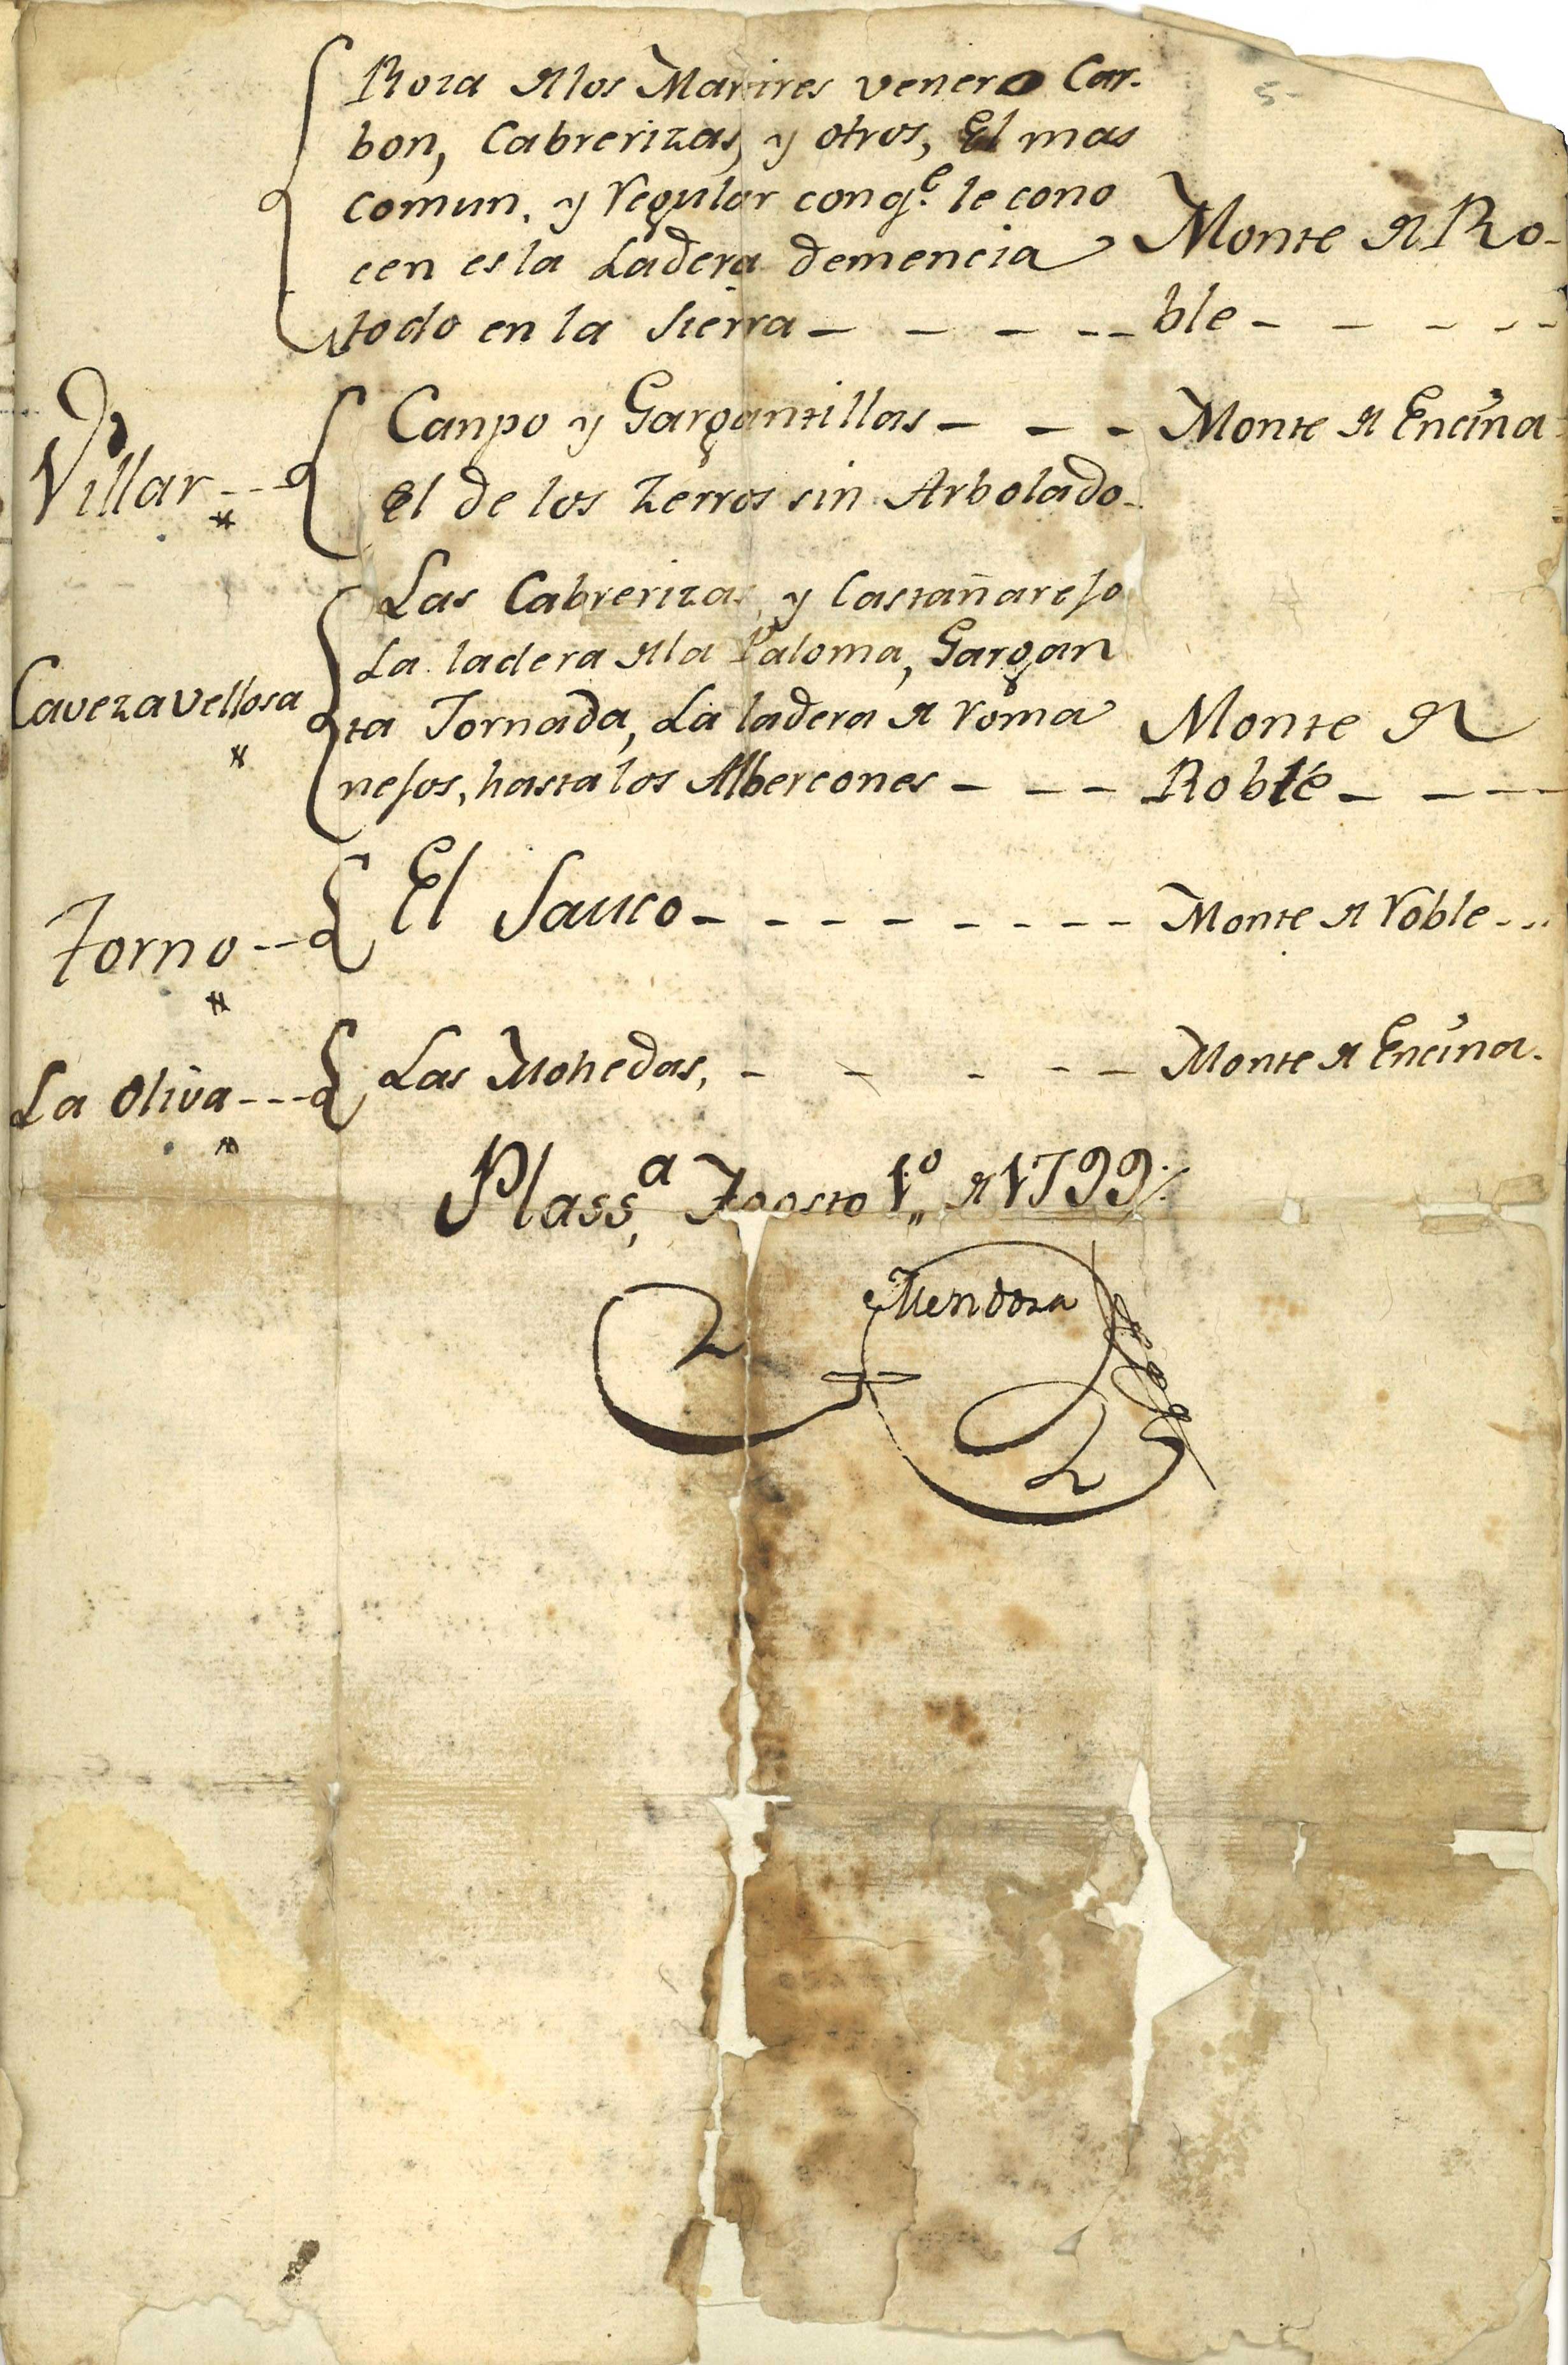 Roza de los Martires venero Car-
bon, Cabrerizas, y otros, El mas
comun, y regular con q.e le cono
cen es la Ladera demencia Monte de Ro-
todo en la Sierra - - - - - ble - - - - -
Villar - - - Canpo y Gargantillas - - - Monte de Encina
El de los Zerros sin Arbolado -
Las Cabrerizas, y Castañarejo
La ladera de la Paloma, Gargan
Cavezavellosa ta Tornada, La ladera de roma Monte de
nejos, hasta los Albercones - - - Roble - - - -
Torno - - El Sauco - - - - - - - - Monte de roble - - -
La Oliva - - - Las Mohedas, - - - - - Monte de Encina.
Plass.a Agosto 1.o de 1799
Mendoza